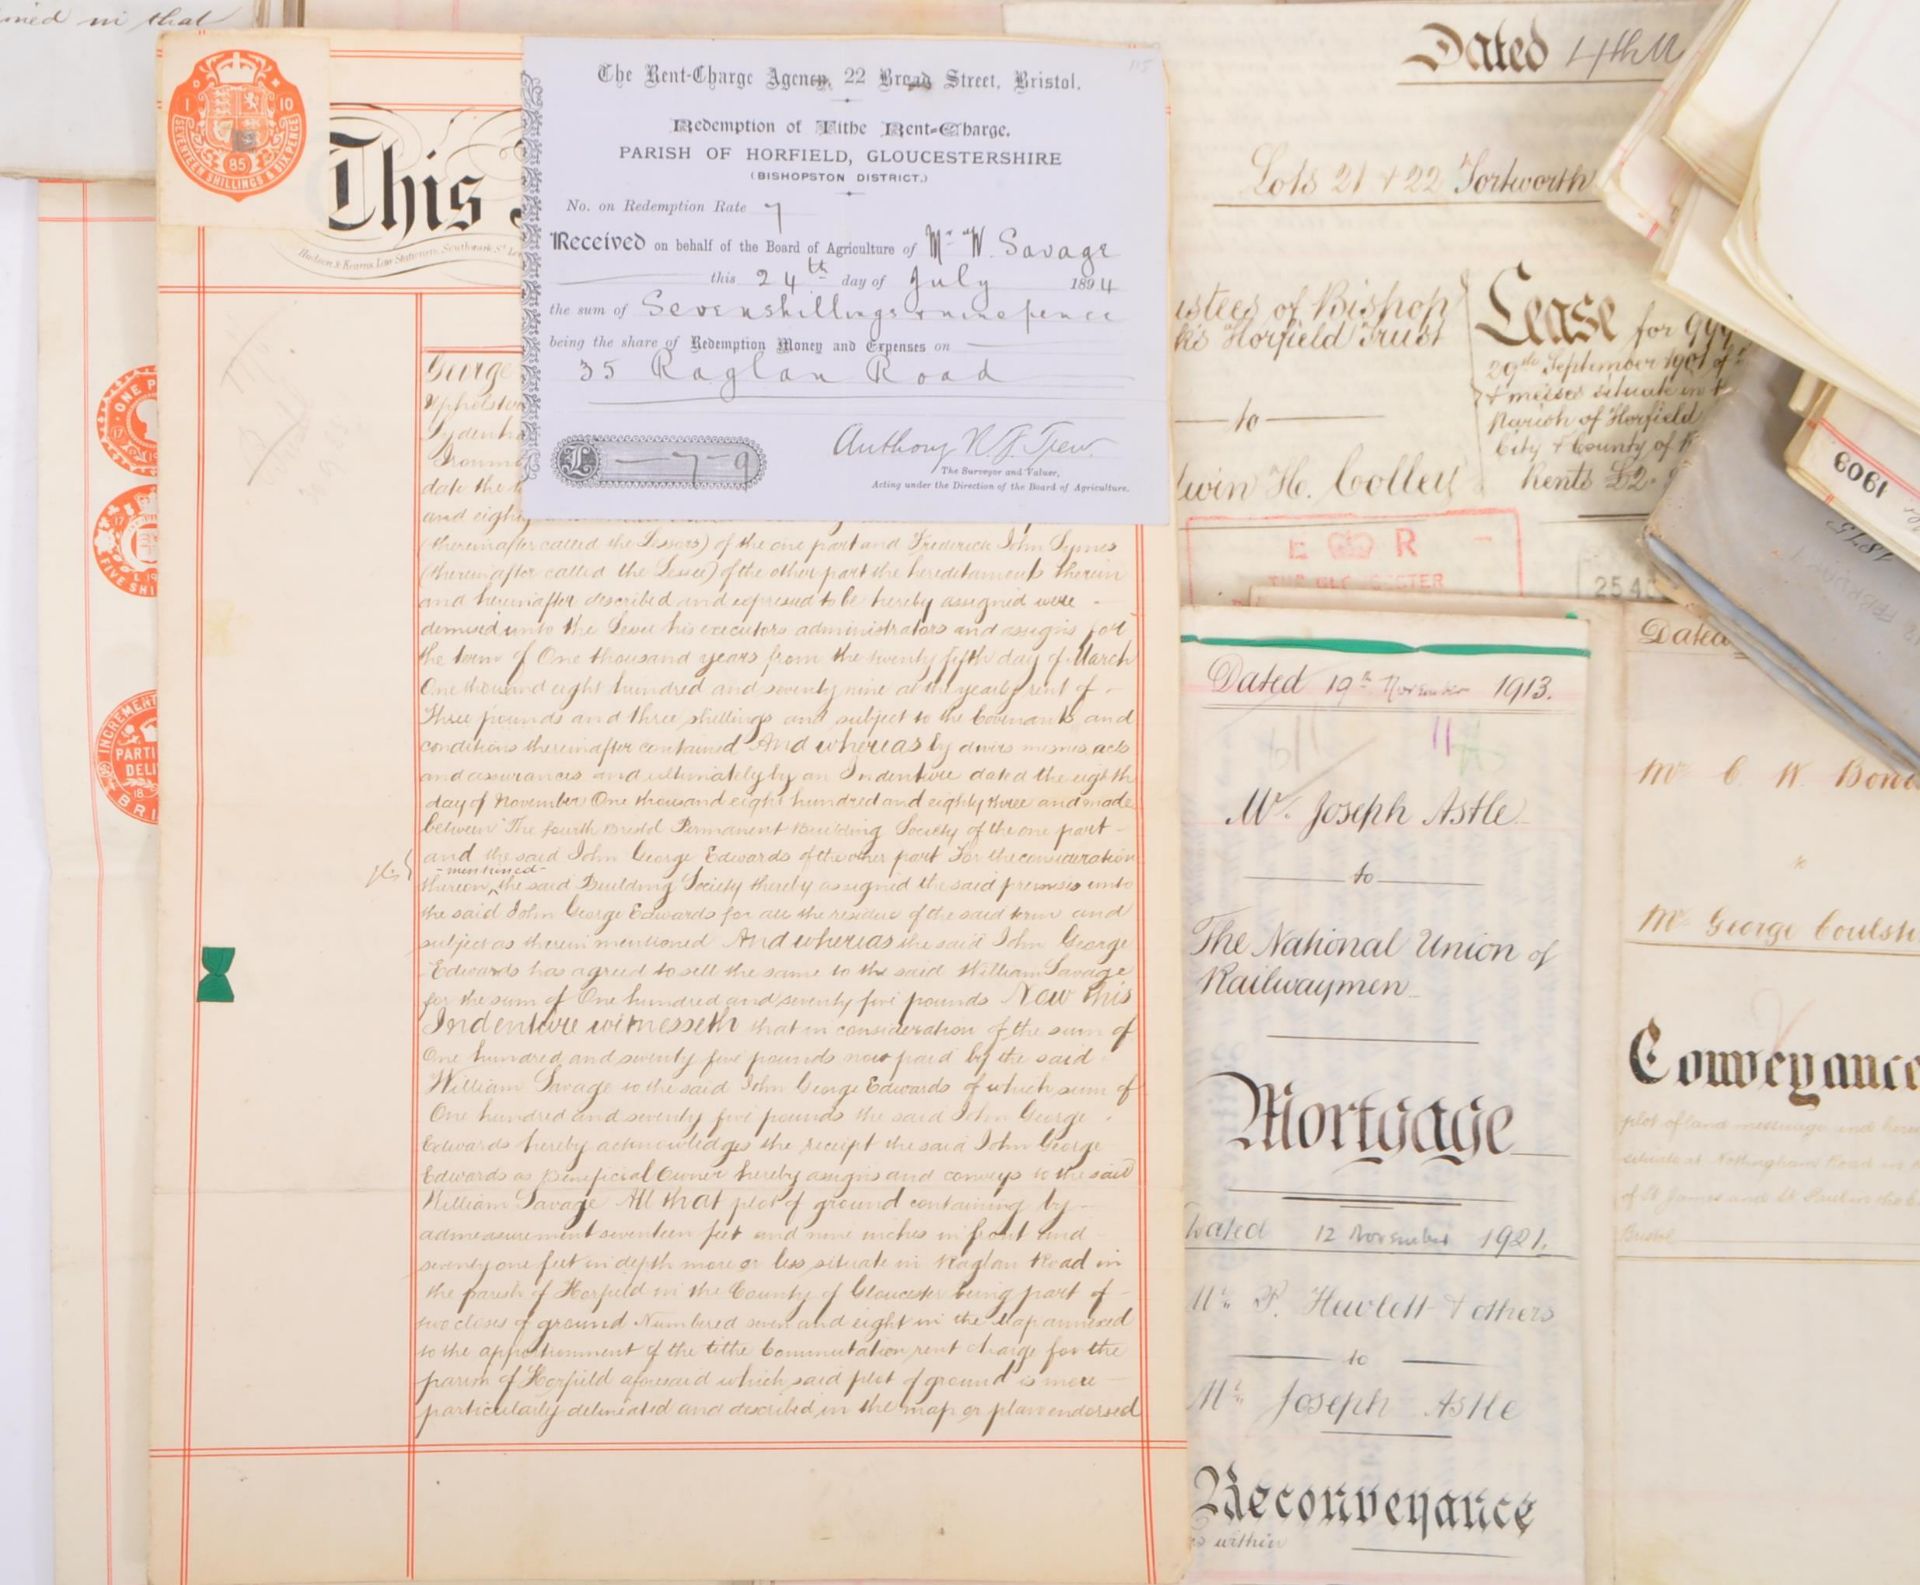 ined in that
1 10
85
SEVENTEEN SHILLINGS & SIX PENCE
This
Hudson & Kearns, Law Stationers, Southwark St
The Rent-Charge Agency, 22 Broad Street, Bristol.
Redemption of Tithe Rent-Charge.
PARISH OF HORFIELD, GLOUCESTERSHIRE
(BISHOPSTON DISTRICT.)
No. on Redemption Rate 7
Received on behalf of the Board of Agriculture of Mr W. Savage
this 24th day of July 1894
the sum of Seven shillings & nine pence
being the share of Redemption Money and Expenses on
35 Raglan Road
£ — 7 - 9
Anthony
The Surveyor and Valuer,
Acting under the Direction of the Board of Agriculture.
George
date the
and eighty
(thereinafter called the Lessors) of the one part and Frederick John Symes
(thereinafter called the Lessee) of the other part the hereditaments therein
and hereinafter described and expressed to be hereby assigned were -
demised unto the Lessee his executors administrators and assigns for
the term of One thousand years from the twenty fifth day of March
One thousand eight hundred and seventy nine at the yearly rent of -
Three pounds and three shillings and subject to the Covenants and
conditions thereinafter contained And whereas by divers mesne acts
and assurances and ultimately by an Indenture dated the eighth
day of November One thousand eight hundred and eighty three and made
between The fourth Bristol Permanent Building Society of the one part -
and the said John George Edwards of the other part For the consideration
- mentioned -
therein the said Building Society thereby assigned the said premises unto
the said John George Edwards for all the residue of the said term and
subject as therein mentioned And whereas the said John George
Edwards has agreed to sell the same to the said William Savage
for the sum of One hundred and seventy five pounds Now this
Indenture witnesseth that in consideration of the sum of
One hundred and seventy five pounds now paid by the said
William Savage to the said John George Edwards of which sum of
One hundred and seventy five pounds the said John George
Edwards hereby acknowledges the receipt the said John George
Edwards as Beneficial Owner hereby assigns and conveys to the said
William Savage All that plot of ground containing by -
admeasurement seventeen feet and nine inches in front and -
seventy one feet in depth more or less situate in Raglan Road in
the parish of Horfield in the County of Gloucester being part of -
two closes of ground Numbered seven and eight in the Map annexed
to the apportionment of the tithe Commutation rent charge for the
parish of Horfield aforesaid which said plot of ground is more -
particularly delineated and described in the map or plan endorsed
ONE P
17
FIVE SHI
INCREMENT
PARTI
DELI
BRI
Dated 4th M
Lots 21 + 22 Tortworth
ustees of Bishop
k's Horfield Trust
— to —
win H. Colley
Lease for 999
29th September 1901 of
messes situate in t
Parish of Horfield
City + County of
Rents £2.
E R
25 AC
1903
1875
FEBRUARY
Dated 19th November 1913.
Mr. Joseph Astle
— to —
The National Union of
Railwaymen
Mortgage
Dated 12 November 1921.
Mr. P. Hewlett & others
— to —
Mr. Joseph Astle
Reconveyance
within
Dated
Mr C. W. Bow
to
Mr George Coulst
Conveyance
plot of land messuage and
situate at Nottingham Road in
of St James and St Paul in the
Bristol